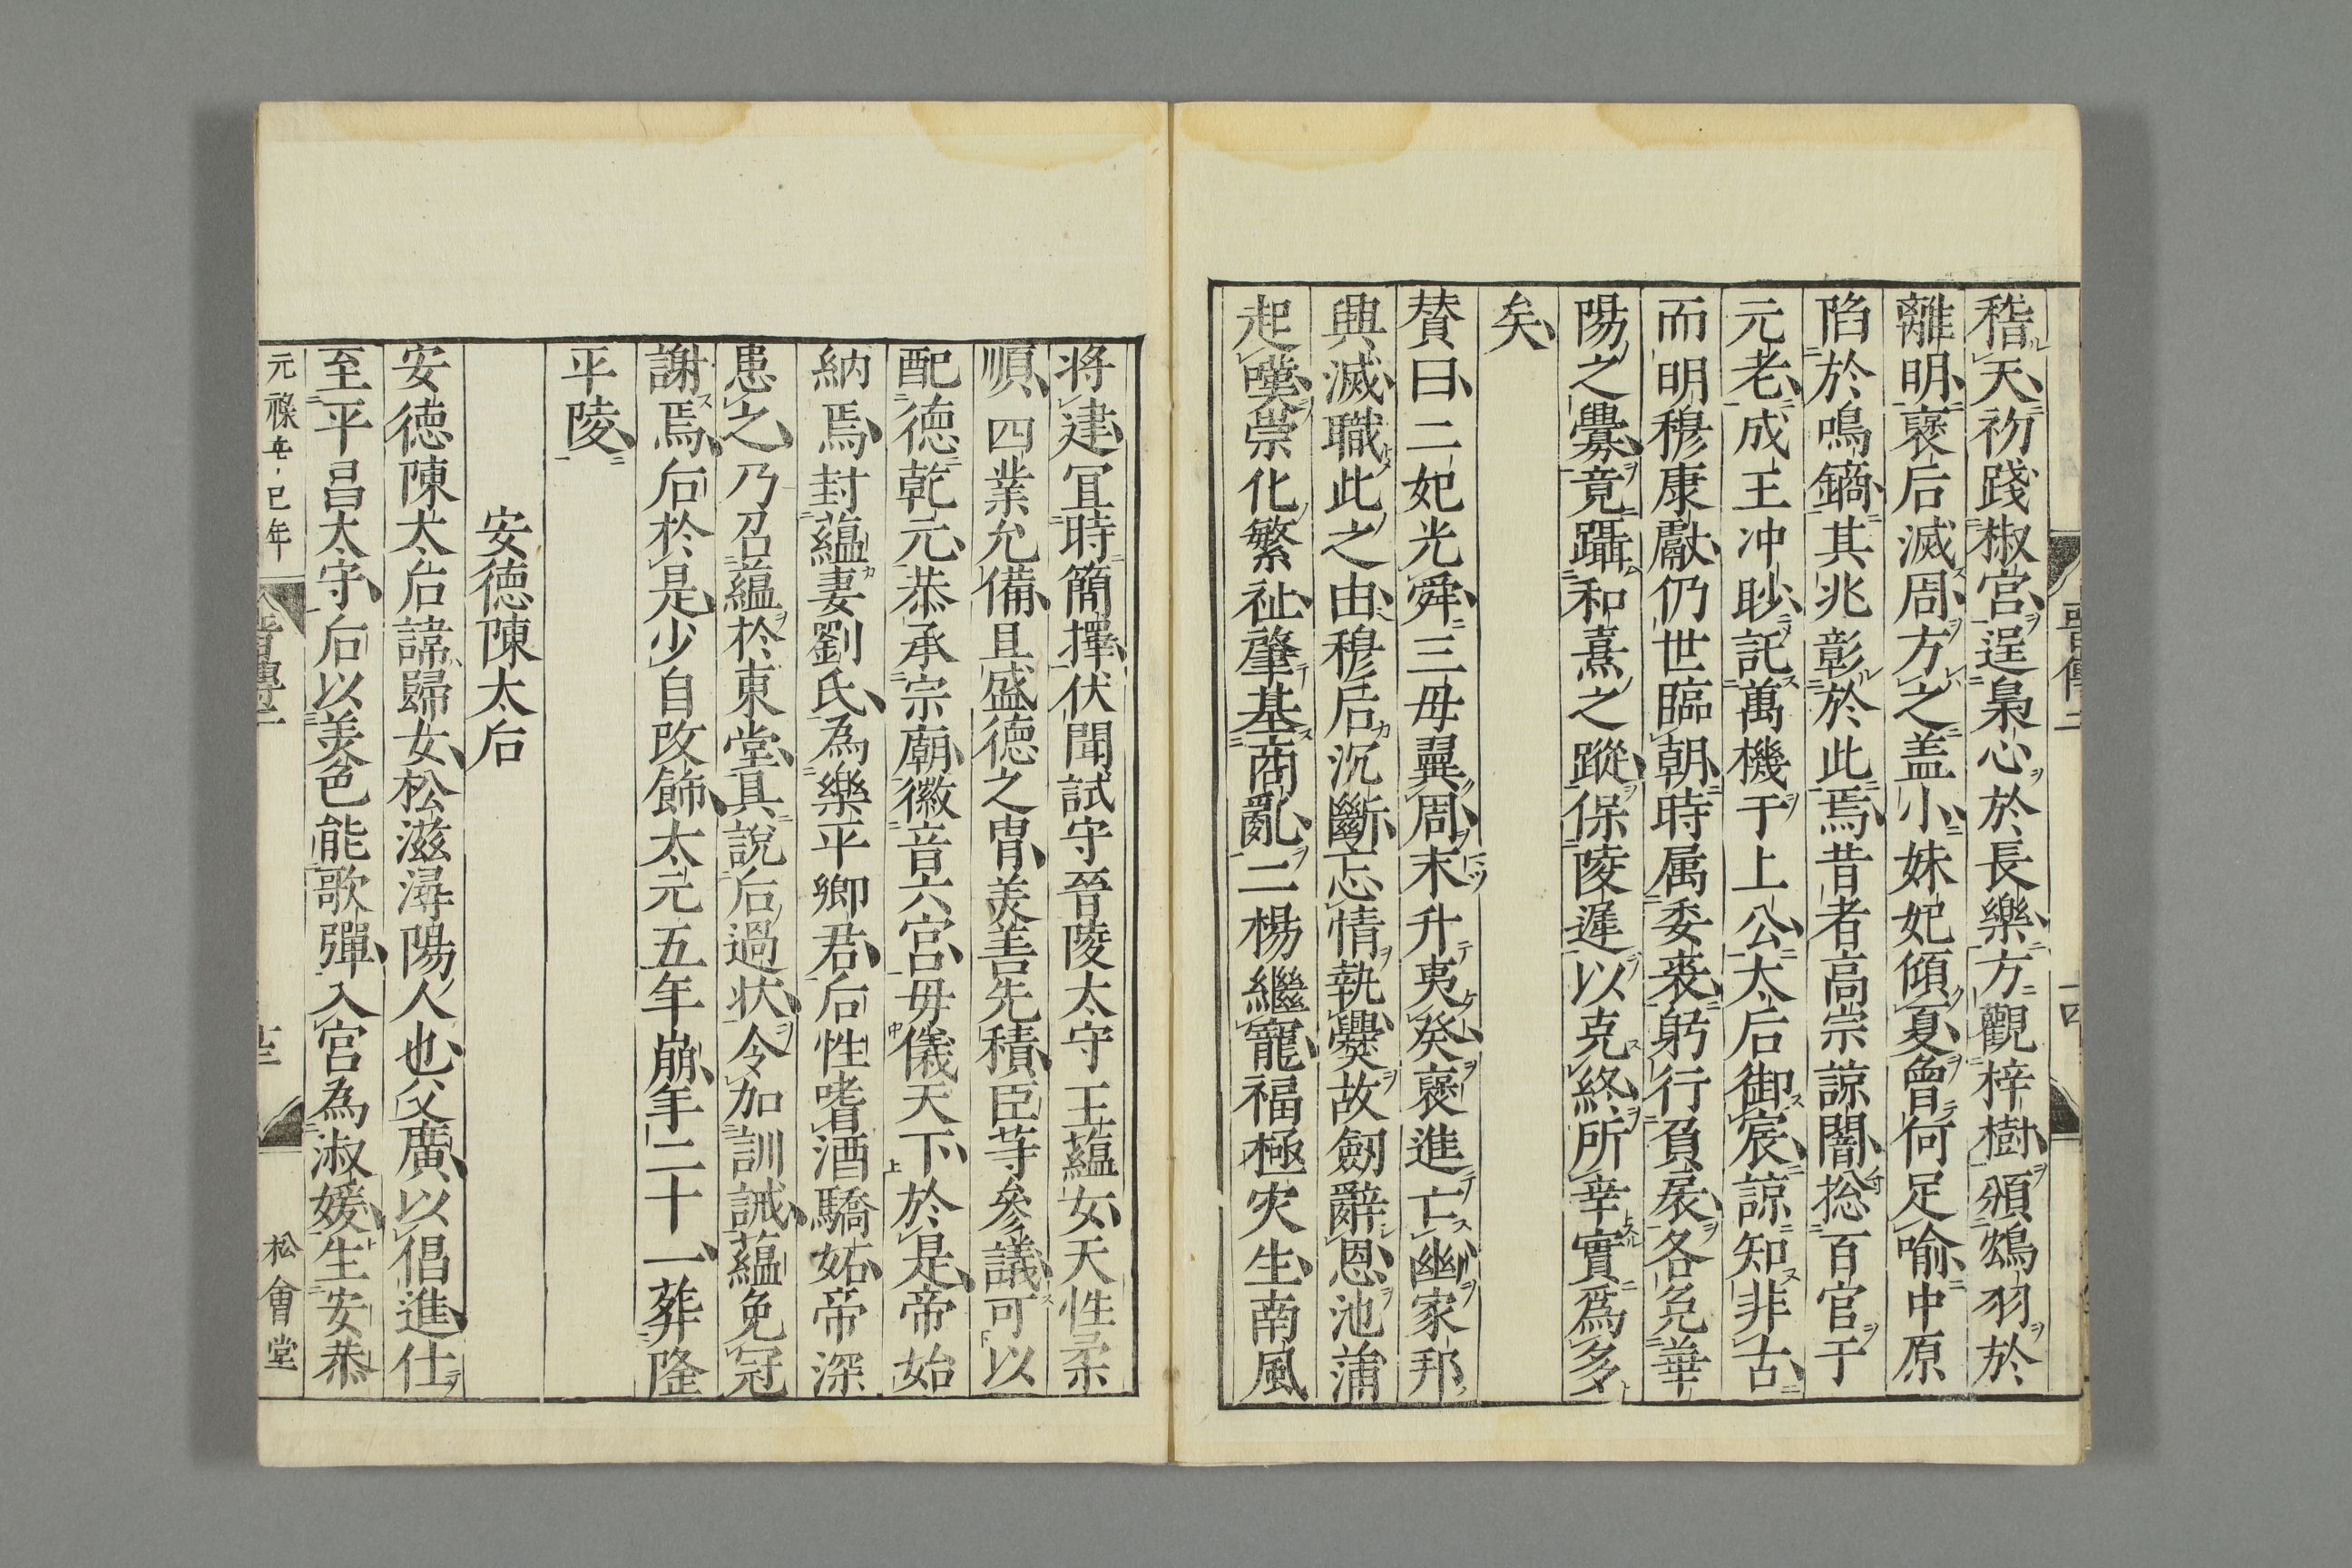 稽天初踐椒宮逞梟心於長樂方觀梓樹頒鴆羽於
離明褒后滅周方之盖小妹妃傾夏曾何足喻中原
陷於鳴鏑其兆彰於此焉昔者高宗諒闇捴百官于
元老成王冲眇託萬機于上公太后御宸諒知非古
而明穆康獻仍世臨朝時属委裘躬行負扆各免華
陽之釁竟躡和熹之蹤保陵遲以克終所幸實爲多
矣
賛曰二妃光舜三母翼周末升夷癸褒進亡幽家邦
興滅職此之由穆后沉斷忘情執爨故劒辭恩池蒲
起嘆崇化繁祉肇基商亂二楊繼寵福極灾生南風
晋傳二
将建宜時簡擇伏聞試守晉陵太守王蘊女天性柔
順四業允備且盛德之胄美善先積臣等參議可以
配德乾元恭承宗廟徽音六宮母儀天下於是帝始
納焉封蘊妻劉氏為樂平郷君后性嗜酒驕妬帝深
患之乃召蘊於東堂具說后過状令加訓誡蘊免冠
謝焉后於是少自改飾太元五年崩年二十一葬隆
平陵
安德陳太后
安德陳太后諱歸女松滋潯陽人也父廣以倡進仕
至平昌太守后以美色能歌彈入宮為淑媛生安恭
元祿辛巳年
晋傳二
松會堂